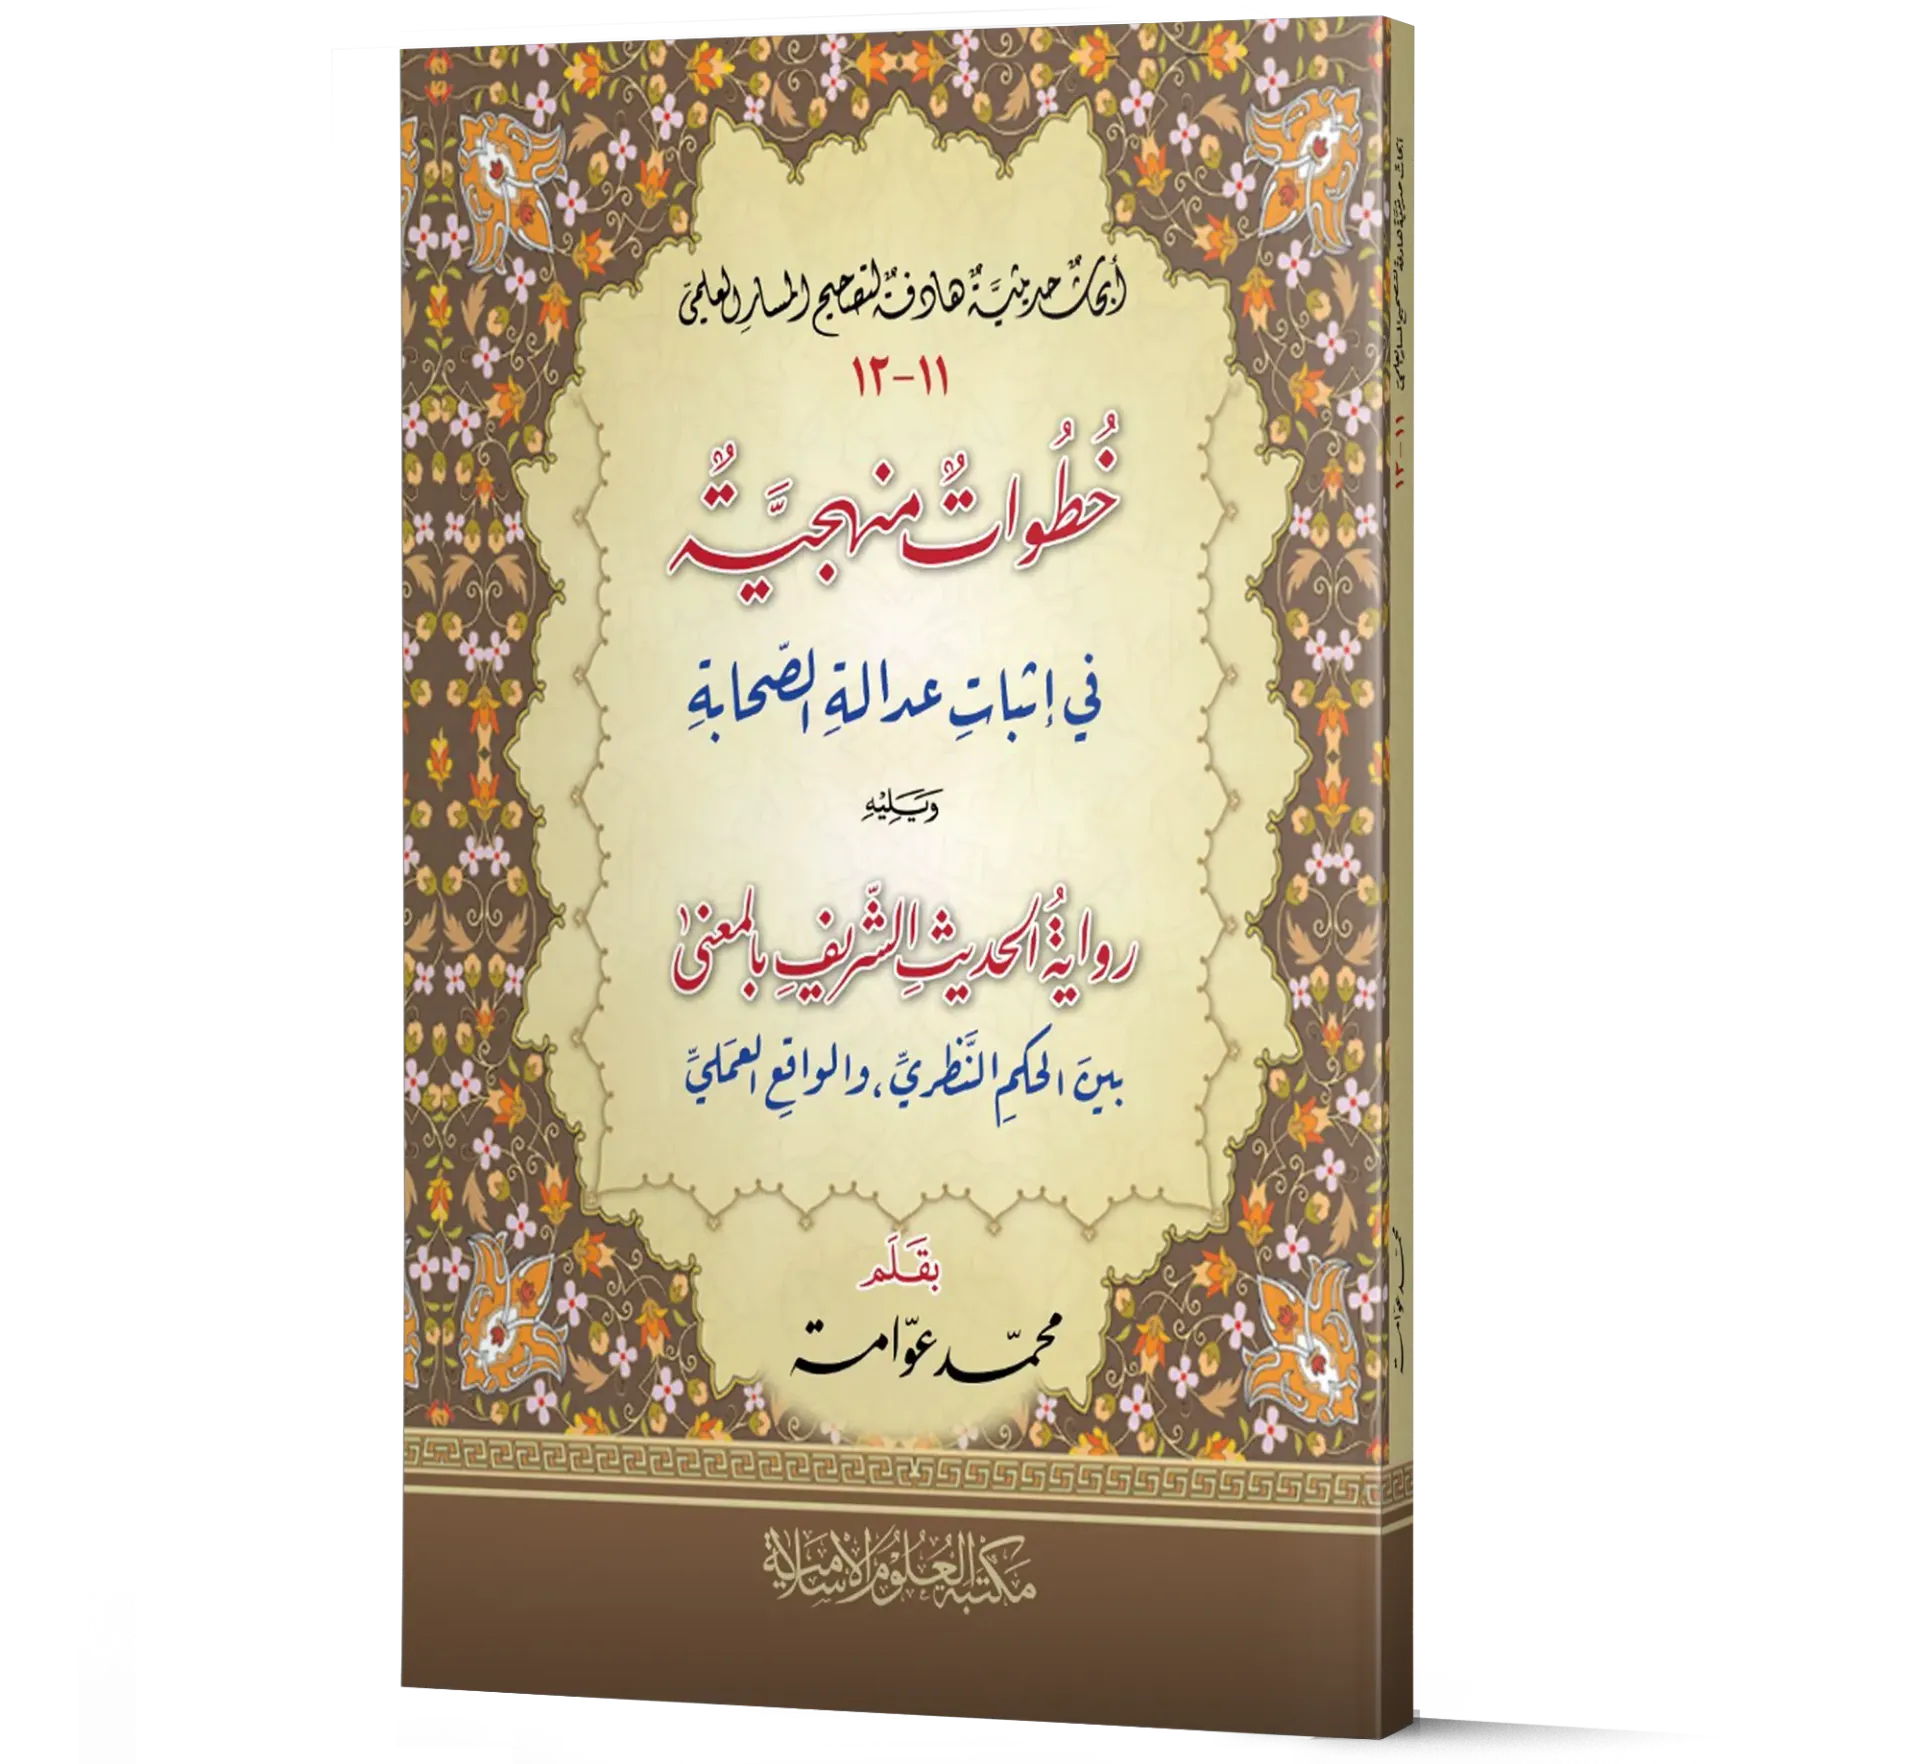 أبحاثٌ حديثيَّةٌ هادفةٌ لتصحيح المسارِ العلميّ
١١-١٢
خُطُواتٌ منهجيَّةٌ
في إثباتِ عدالةِ الصّحابةِ
وَيَلِيْهِ
روايةُ الحديثِ الشَّريفِ بالمعنىٰ
بينَ الحكمِ النَّظريِّ، والواقعِ العمَليِّ
بقَلَم
محمّد عوّامة
مكتبة العُلُوم الإسلامية
أبحاثٌ حديثيَّةٌ هادفةٌ لتصحيح المسارِ العلميّ
١١-١٢
محمّد عوّامة